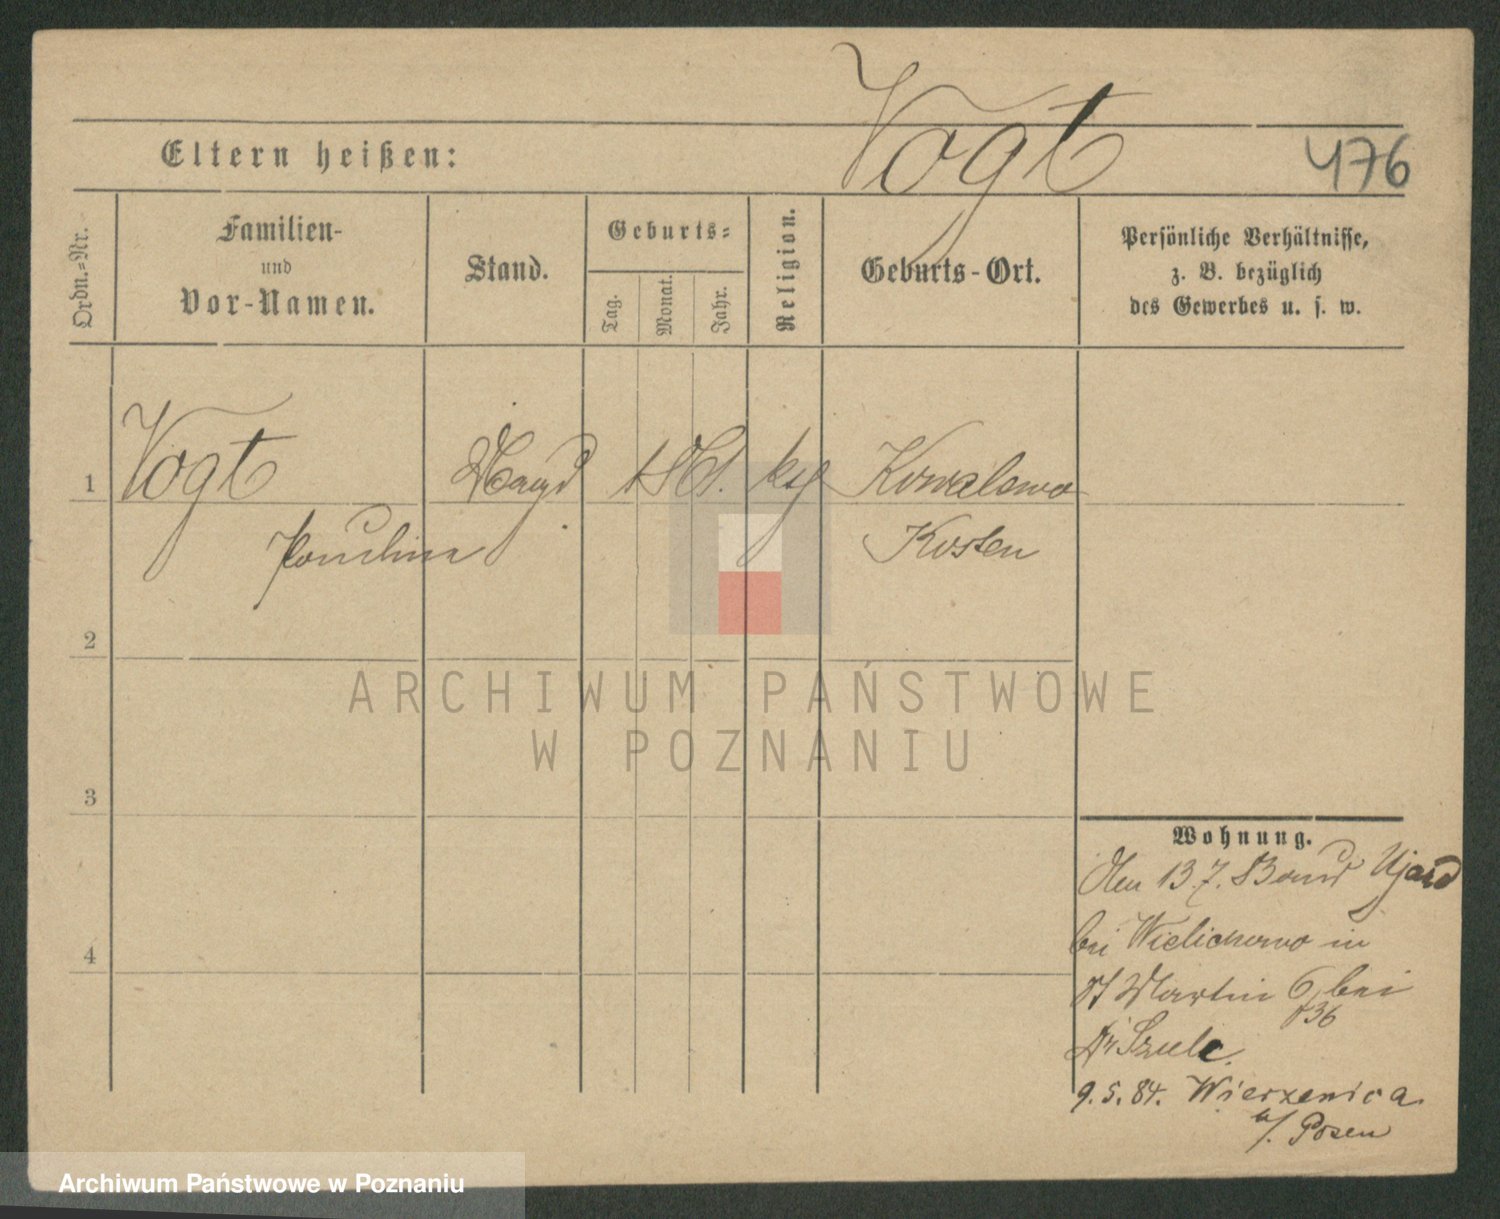 Vogt
Eltern heißen:
476
Ordn.=Nr.
Familien-
und
Vor-Namen.
Stand.
Geburts=
Tag.
Monat.
Jahr.
Religion.
Geburts-Ort.
Persönliche Verhältnisse,
z. B. bezüglich
des Gewerbes u. s. w.
1 Vogt Magd kg Kowalewo
Pauline Kosten
2
ARCHIWUM PAŃSTWOWE
W POZNANIU
3
Wohnung.
13.7. Ujazd
4
bei Wielichowo in
St Martin 6 bei
36
Dr Szulc.
9.5.84. Wierzenica
b/. Posen
Archiwum Państwowe w Poznaniu